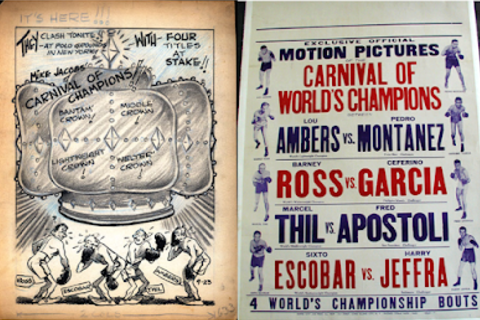 IT'S HERE!!!
THEY CLASH TONITE
- AT POLO GROUNDS
IN NEW YORK!!
WITH - FOUR
TITLES
AT
STAKE!!
MIKE JACOBS'
CARNIVAL OF
CHAMPIONS!!
BANTAM
CROWN
MIDDLE
CROWN
LIGHTWEIGHT
CROWN
WELTER
CROWN
ROSS
ESCOBAR
THIL
AMBERS
9-23
EXCLUSIVE OFFICIAL
MOTION PICTURES
OF THE
CARNIVAL OF
WORLD'S CHAMPIONS
LOU
PEDRO
AMBERS VS. MONTANEZ
BARNEY
CEFERINO
ROSS VS. GARCIA
MARCEL
FRED
THIL VS. APOSTOLI
SIXTO
HARRY
ESCOBAR VS. JEFFRA
4 WORLD'S CHAMPIONSHIP BOUTS